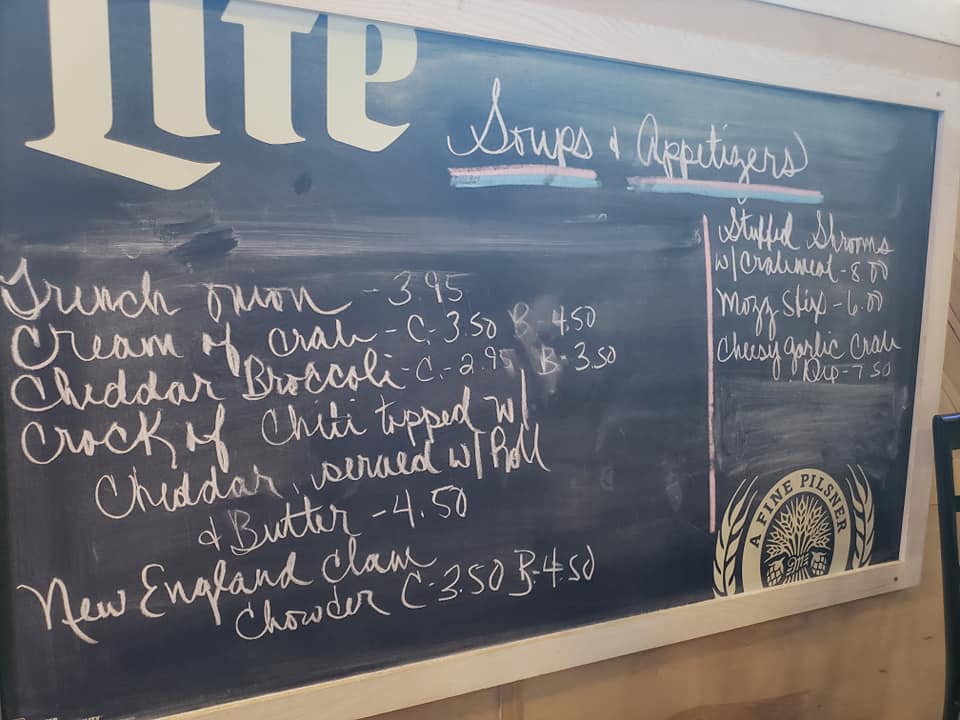 Lite
Soups & Appetizers
French onion - 3.95
Cream of crab - C- 3.50 B- 4.50
Cheddar Broccoli - C- 2.95 B- 3.50
Crock of Chili topped w/
Cheddar, served w/ Roll
& Butter - 4.50
New England Clam
Chowder C- 3.50 B- 4.50
Stuffed Shrooms
w/ Crabmeat - 8.00
Mozz Stix - 6.00
Cheesy garlic Crab
Dip - 7.50
A FINE PILSNER